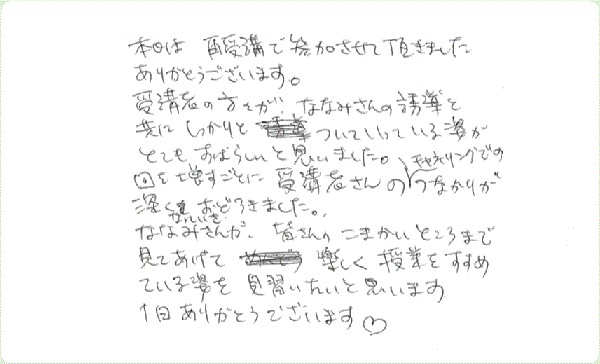 本日は 再受講で参加させて頂きました
ありがとうございます。
受講者の方々が、ななみさんの誘導と
共に しっかりと ついていっている姿が
とても すばらしいと思いました。
回を増すごとに 受講者さんの チャネリングでの つながりが
深くなっていき おどろきました。
ななみさんが、皆さんの こまかいところまで
見てあげて 楽しく 授業をすすめ
ている姿を 見習いたいと思います
1日ありがとうございます♡